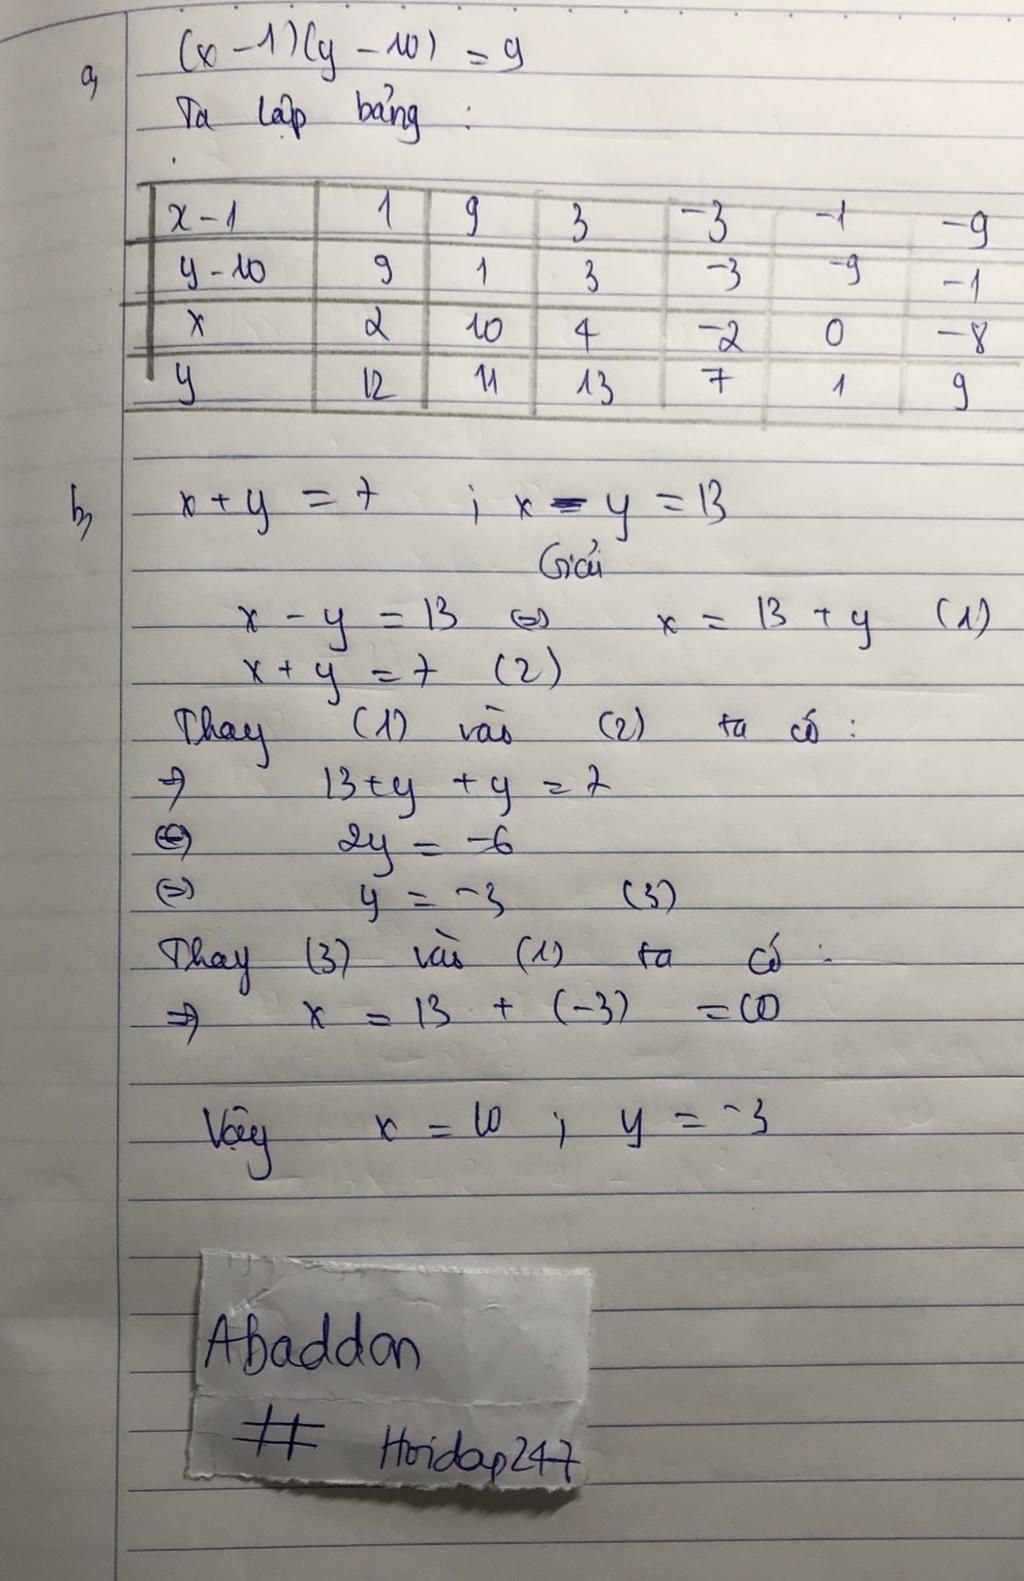 a,
(x - 1)(y - 10) = 9
Ta lập bảng :
x - 1 1 9 3 -3 -1 -9
y - 10 9 1 3 -3 -9 -1
x 2 10 4 -2 0 -8
y 12 11 13 7 1 9
b, x + y = 7 ; x - y = 13
Giải
x - y = 13 <=> x = 13 + y (1)
x + y = 7 (2)
Thay (1) vào (2) ta có :
=> 13 + y + y = 7
<=> 2y = -6
<=> y = -3 (3)
Thay (3) vào (1) ta có :
=> x = 13 + (-3) = 10
Vậy x = 10 ; y = -3
Abaddon
# Hoidap247